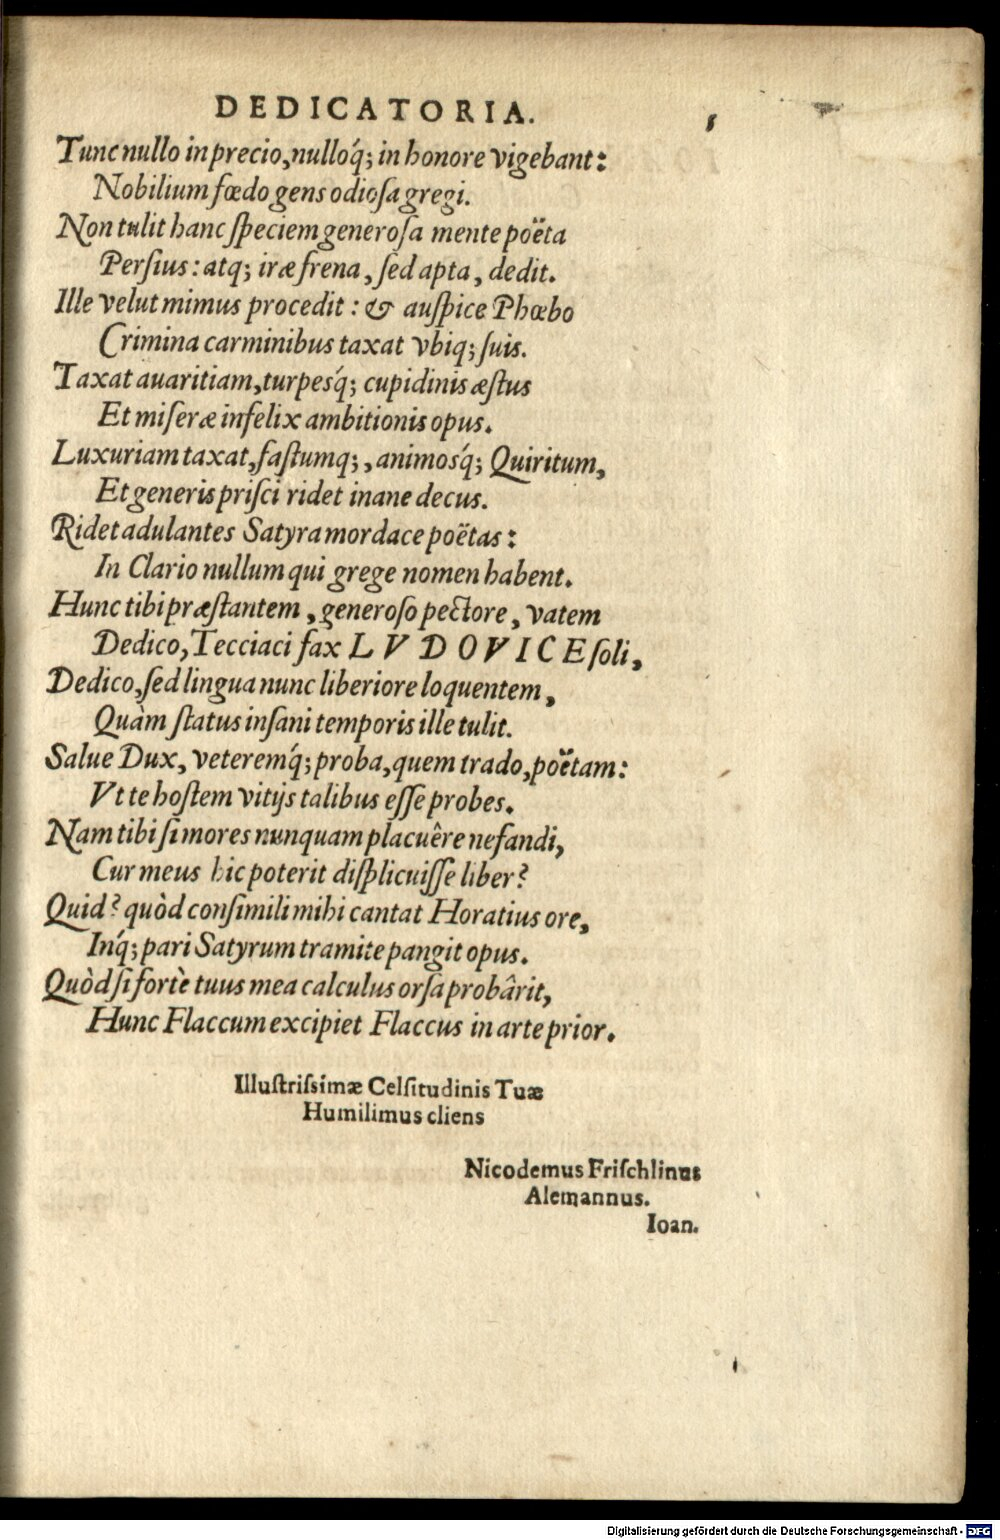 DEDICATORIA.
Tunc nullo in precio, nulloq́; in honore vigebant:
Nobilium fœdo gens odioſa gregi.
Non tulit hanc ſpeciem generoſa mente poëta
Perſius: atq; iræ frena, ſed apta, dedit.
Ille velut mimus procedit: & auſpice Phœbo
Crimina carminibus taxat vbiq; ſuis.
Taxat auaritiam, turpesq́; cupidinis æſtus
Et miſeræ infelix ambitionis opus.
Luxuriam taxat, faſtumq;, animosq́; Quiritum,
Et generis priſci ridet inane decus.
Ridet adulantes Satyra mordace poëtas:
In Clario nullum qui grege nomen habent.
Hunc tibi præſtantem, generoſo pectore, vatem
Dedico, Tecciaci fax LVDOVICE ſoli,
Dedico, ſed lingua nunc liberiore loquentem,
Quàm ſtatus inſani temporis ille tulit.
Salue Dux, veteremq́; proba, quem trado, poëtam:
Vt te hoſtem vitijs talibus eſſe probes.
Nam tibi ſi mores nunquam placuêre nefandi,
Cur meus hic poterit diſplicuiſſe liber?
Quid? quòd conſimili mihi cantat Horatius ore,
Inq́; pari Satyrum tramite pangit opus.
Quòd ſi fortè tuus mea calculus orſa probârit,
Hunc Flaccum excipiet Flaccus in arte prior.
Illuſtriſsimæ Celſitudinis Tuæ
Humilimus cliens
Nicodemus Friſchlinus
Alemannus.
Ioan.
Digitalisierung gefördert durch die Deutsche Forschungsgemeinschaft - DFG